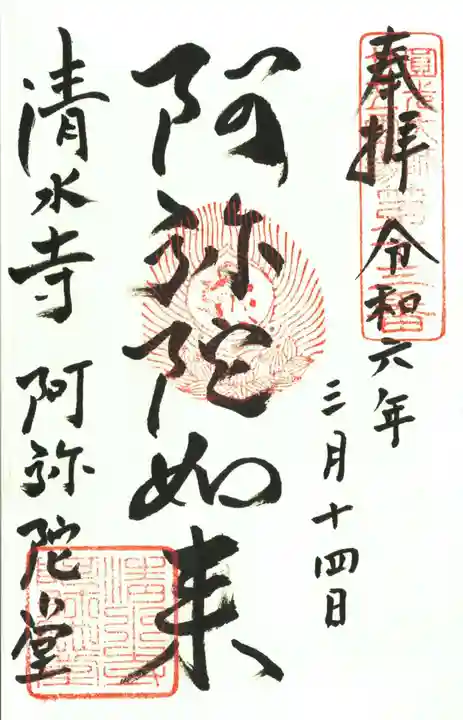 奉拝 令和六年
三月十四日
阿弥陀如来
清水寺 阿弥陀堂